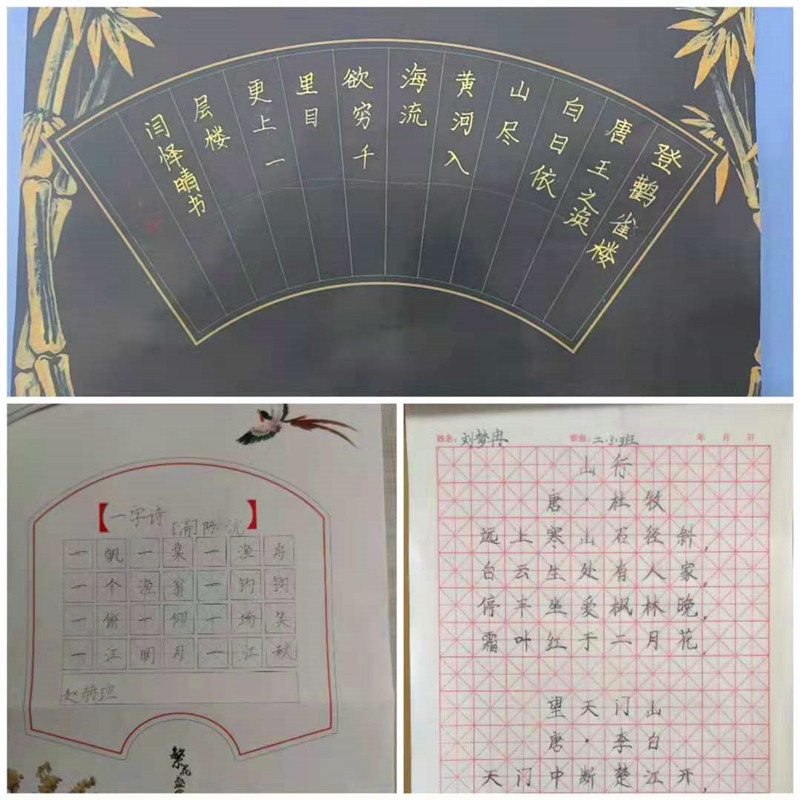 登鹳雀楼
唐王之涣
白日依
山尽
黄河入
海流
欲穷千
里目
更上一
层楼
闫怿晴书
【一字诗】
[清]陈沆
一帆一桨一渔舟
一个渔翁一钓钩
一俯一仰一场笑
一江明月一江秋
繁花
姓名：刘梦冉 班级：二.3班 年 月 日
山行
唐·杜牧
远上寒山石径斜，
白云生处有人家，
停车坐爱枫林晚，
霜叶红于二月花，
望天门山
唐·李白
天门中断楚江开，